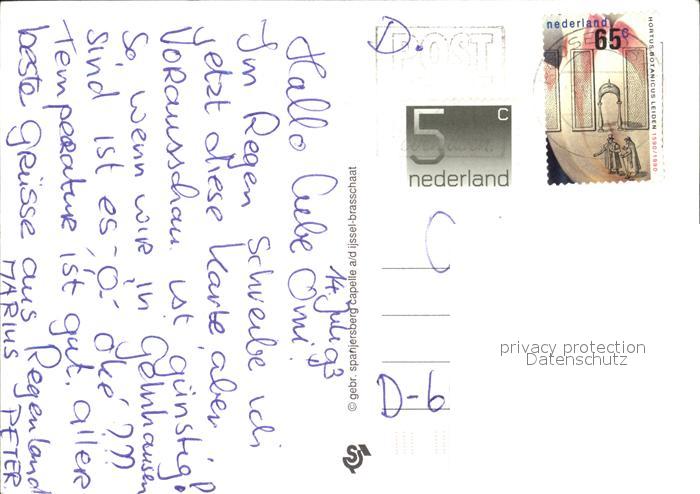 14. Juli 93
Hallo liebe Omi!
Im Regen schreibe ich
jetzt diese Karte, aber
Vorausschau ist günstig!
So wenn wir in Gelnhausen
sind ist es "O" oké???
Temperatur ist gut. aller
beste Grüsse aus Regenland
MARIUS PETER
© gebr. spanjersberg capelle a/d ijssel-brasschaat
D.
POST
5 c
nederland
nederland
65 c
HORTUS BOTANICUS LEIDEN 1590/1990
D-6
privacy protection
Datenschutz